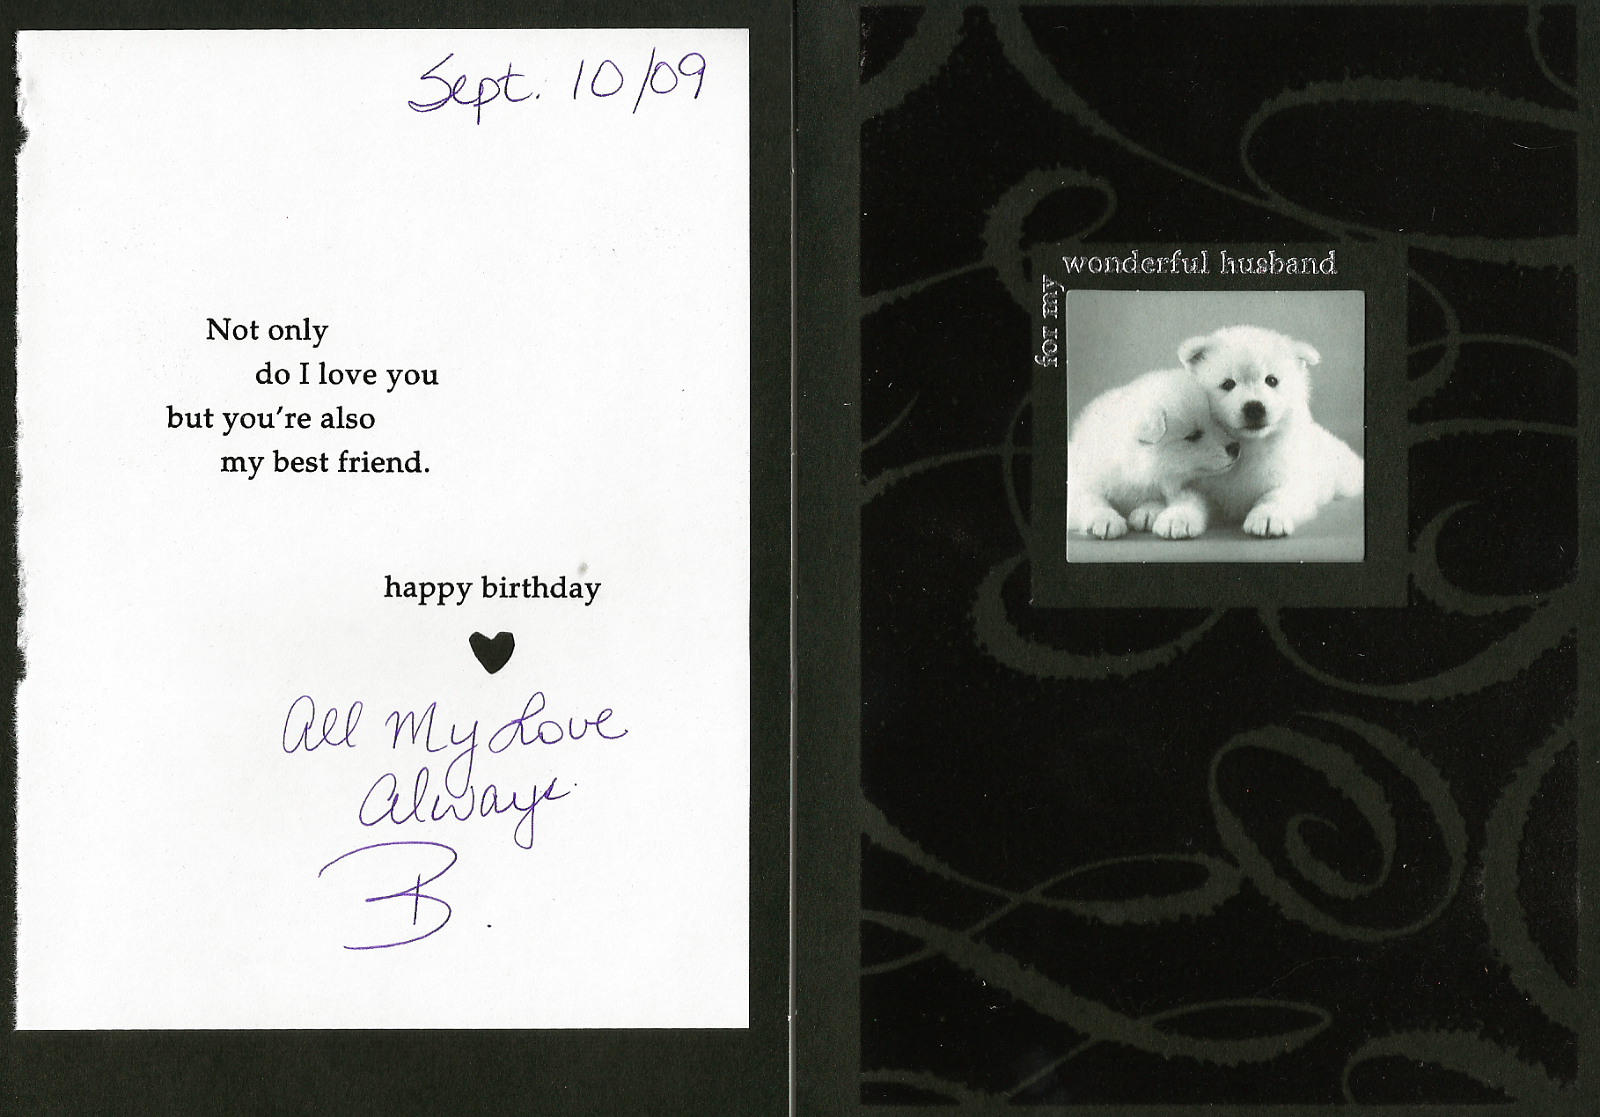 Sept. 10/09
Not only
do I love you
but you're also
my best friend.
happy birthday
All My Love
Always
B.
for my
wonderful husband